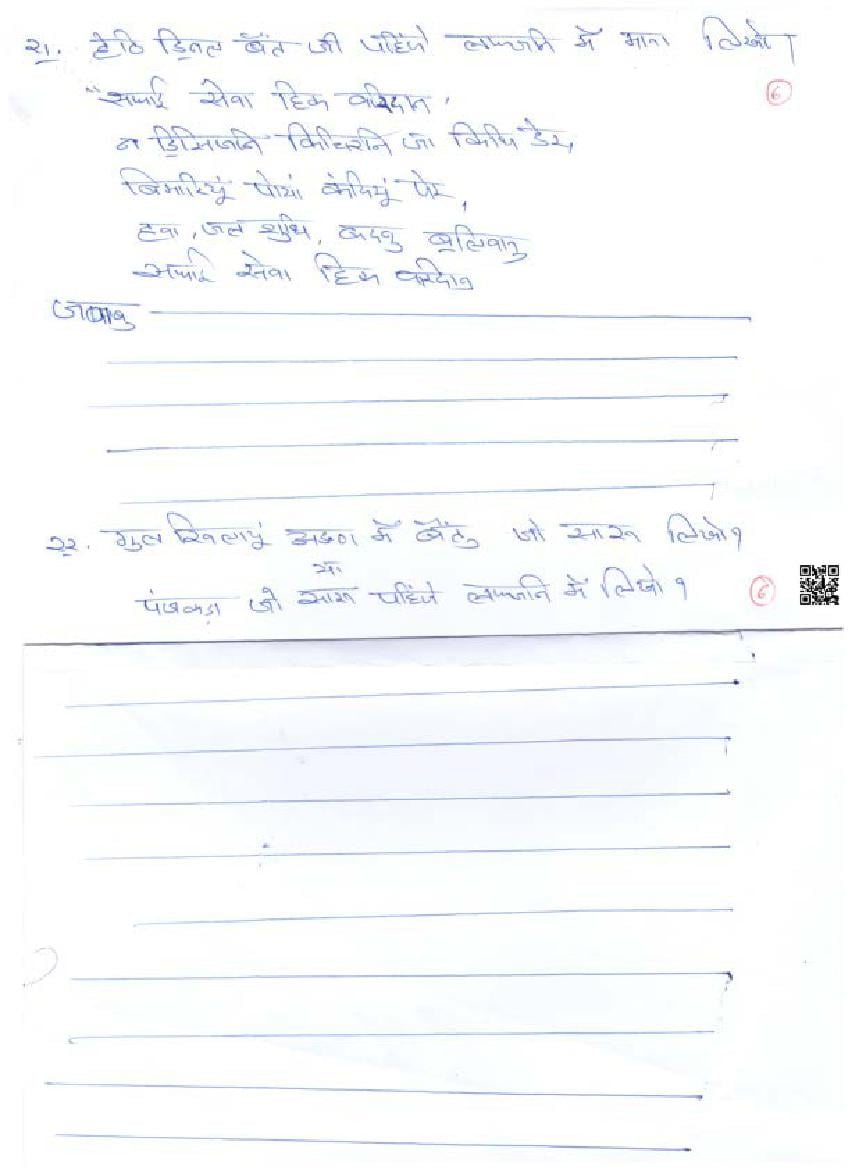 २१. हेठि ड्रिनल बैंत जी पंहिंजे लफ़्ज़नि में माना लिखो।
"सफाई सेवा हिक वरिदान,
६
न ड्रिसिजनि किचिरनि जा किथि ढेर,
बिमारियूं पोयां कंदियूं पेर,
हवा, जल शुधि, बदनु बलिवानु
सफाई सेवा हिक वरिदान
जवाबु
२२. गुल खिलायूं अङण में बैंतु जो सारु लिखो?
या
६
पंजकड़ा जो सारु पंहिंजे लफ़्ज़नि में लिखो?